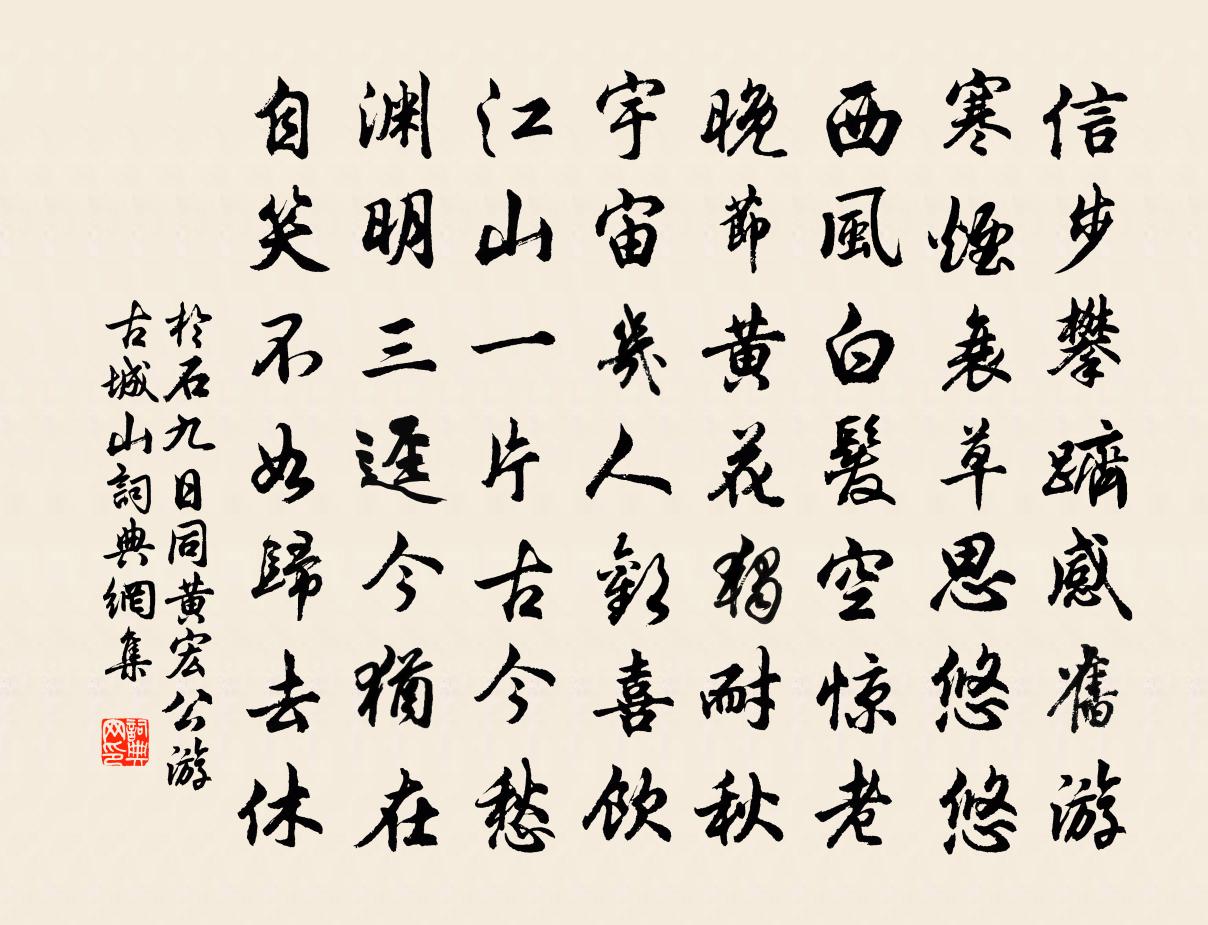 信步攀躋感舊游
寒煙衰草思悠悠
西風白髮空惊老
晚節黄花獨耐秋
宇宙幾人歡喜飲
江山一片古今愁
渊明三逕今猶在
自笑不如歸去休
於石九日同黄宏公游
古城山詞典網集
詞典
网印